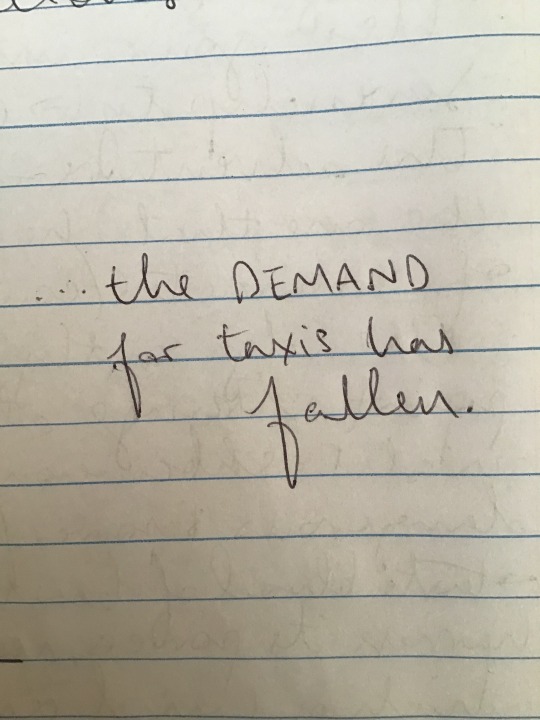 ... the DEMAND
for taxis has
fallen.